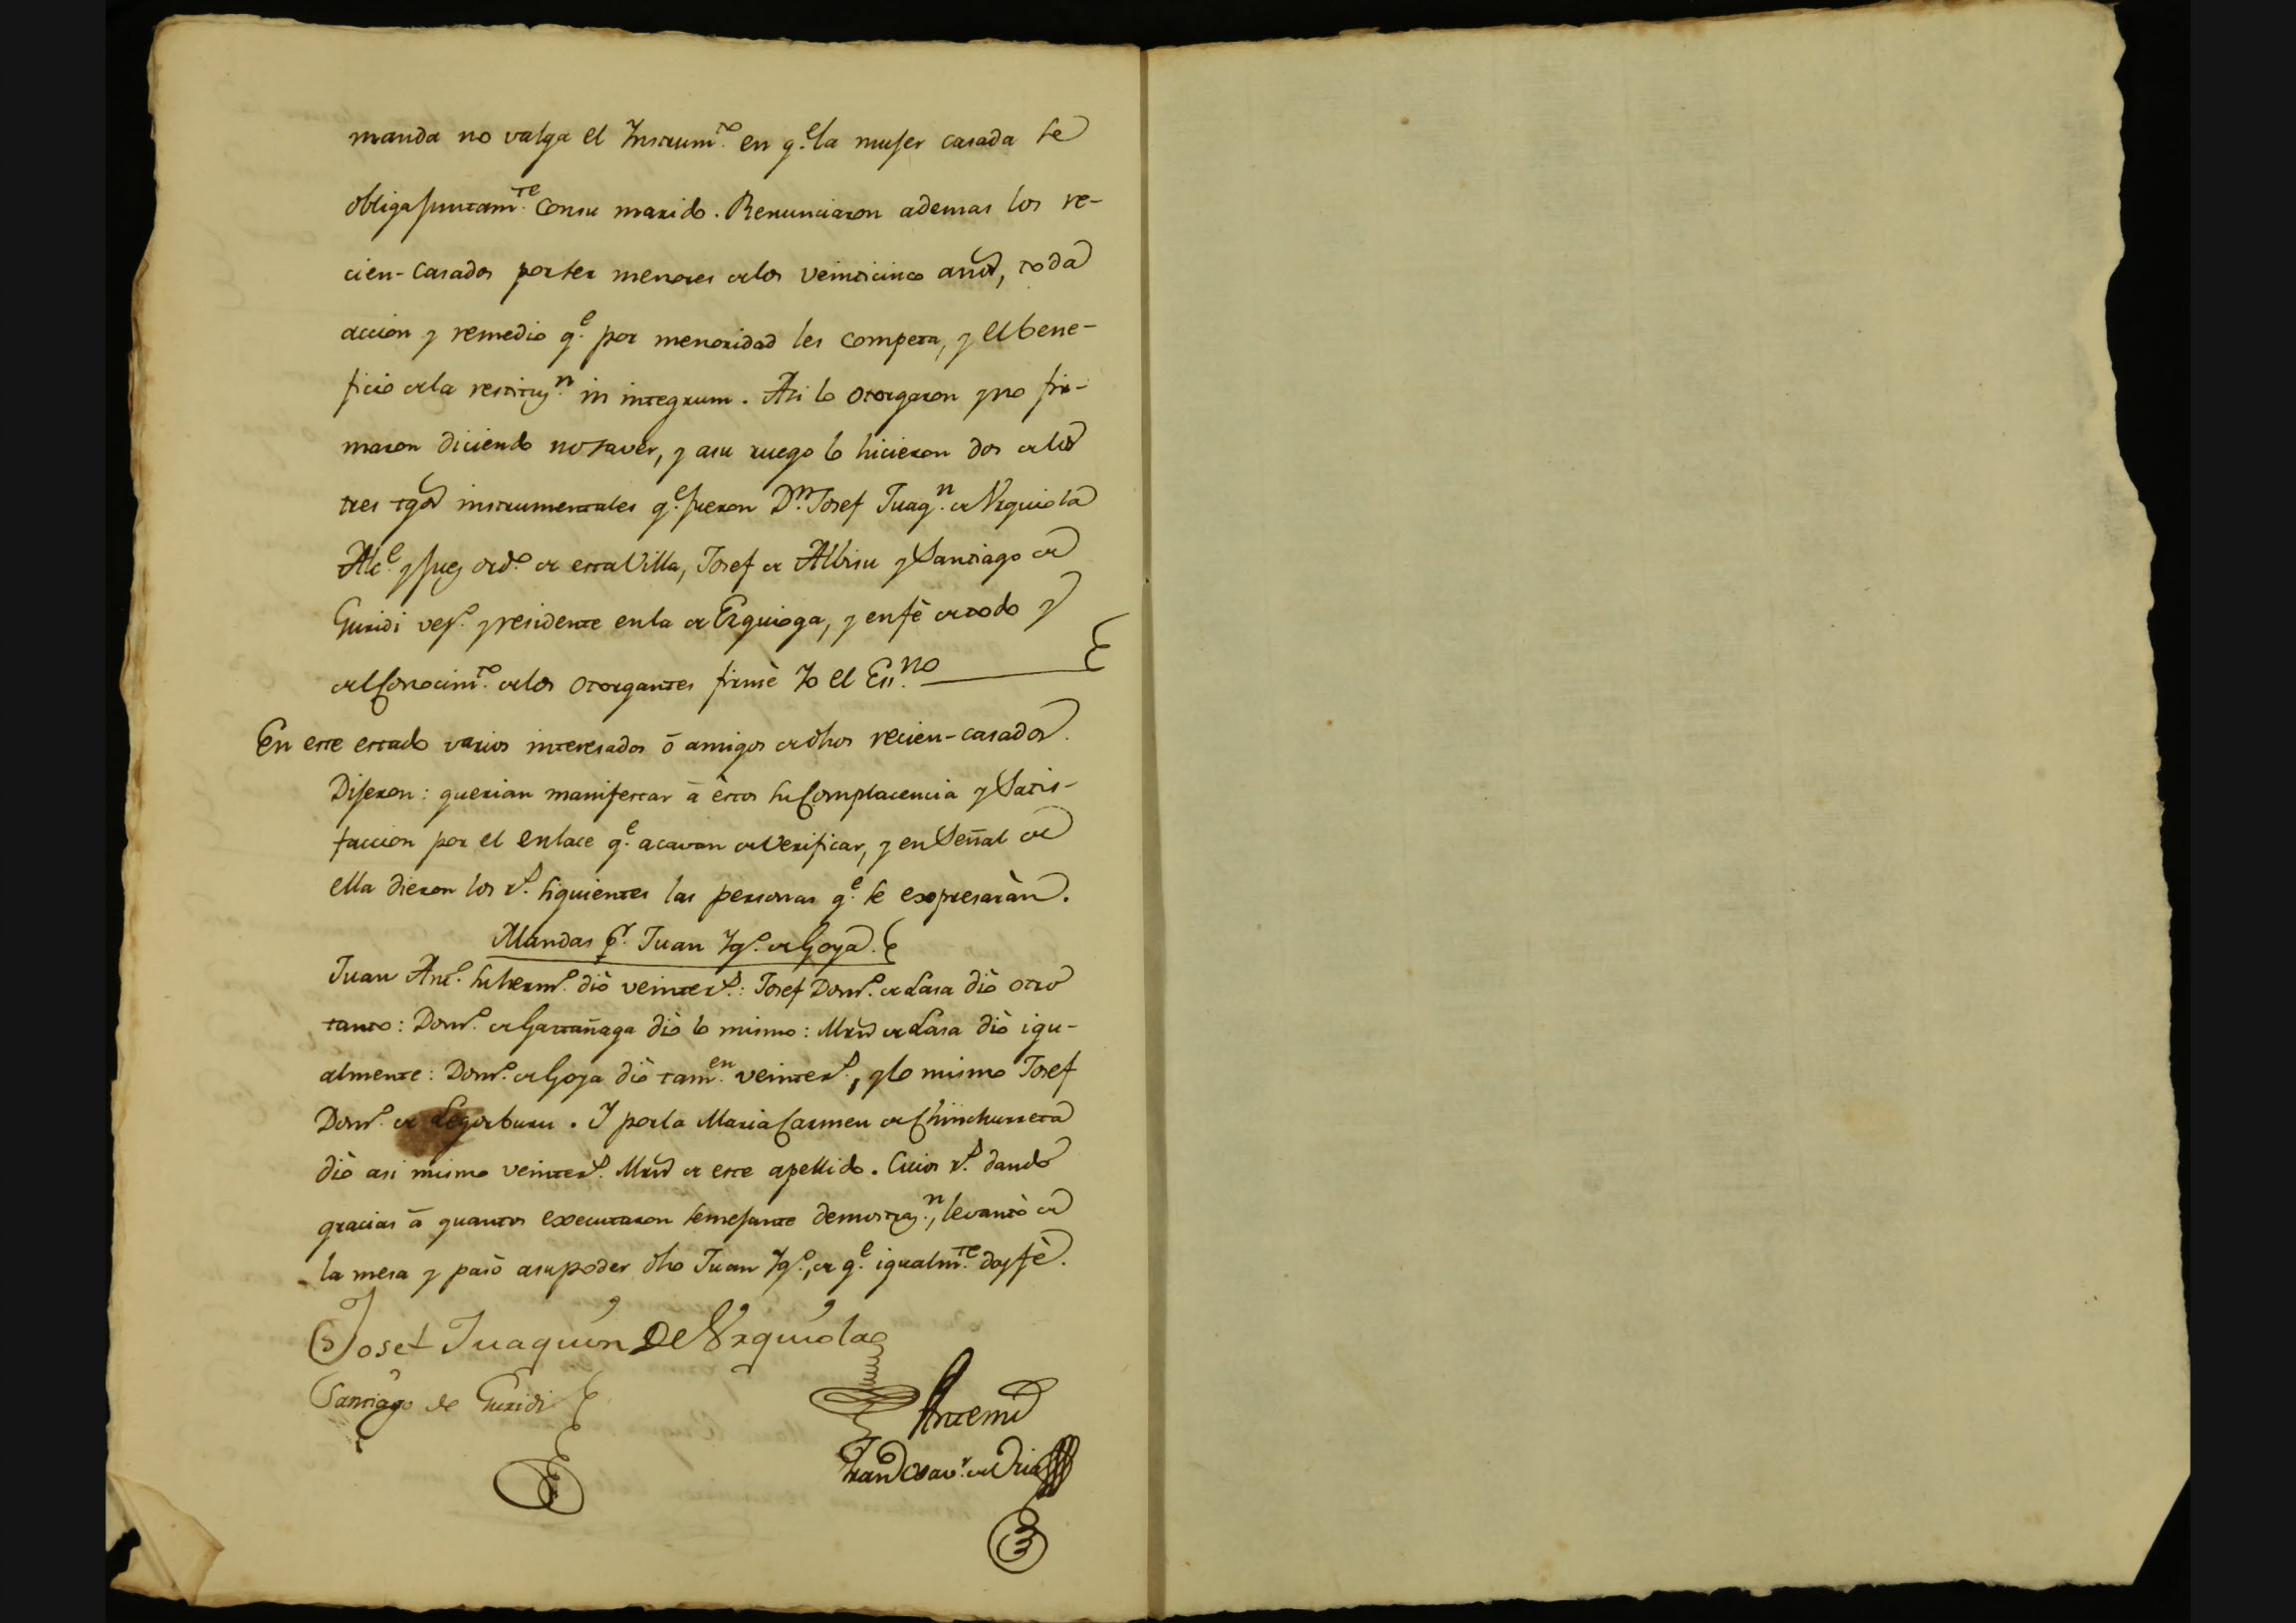 manda no valga el Instrum.to en q.e la mujer casada se
obliga juntam.te con su marido. Renunciaron ademas los re-
cien-casados por ser menores de los veinticinco años, toda
accion y remedio q.e por menoridad les competa, y el bene-
ficio de la restituz.n in integrum. Asi lo otorgaron y no fir-
maron diciendo no saver, y a su ruego lo hicieron dos de los
tres tgos instrumentales q.e fueron D.n Josef Juaq.n de Urquiola
Alc.e y Juez ord.o de esta Villa, Josef de Albisu y Santiago de
Guridi vez.o y residente en la de Ezquioga, y en fè de todo y
del Conocim.to de los otorgantes firmè Yo el Es.no
En este estado varios interesados ō amigos de dhos recien-casados.
Dijeron: querian manifestar ā èstos su Complacencia y Satis-
faccion por el enlace q.e acavan de verificar, y en Señal de
ella dieron los r.s siguientes las personas q.e se expresaràn.
Mandas p.r Juan Yg.o de Goya.
Juan Ant.o su herm.o diò veinte r.s: Josef Dom.o de Lasa diò otro
tanto: Dom.o de Gartañaga diò lo mismo: Mrn de Lasa diò igu-
almente: Dom.o de Goya diò tam.en veinte r.s, y lo mismo Josef
Dom.o de Legorburu. Y por la Maria Carmen de Chinchurreta
diò asi mismo veinte r.s Mrn de este apellido. Cuios r.s dando
gracias ā quantos executaron semejante demostraz.n, levantò de
la mesa y pasò a su poder dho Juan Yg.o, de q.e igualm.te doy fè.
Josef Juaquin De Urquiola
Santiago de Guridi
Ante mi
Fran.co Xav.r de Oria